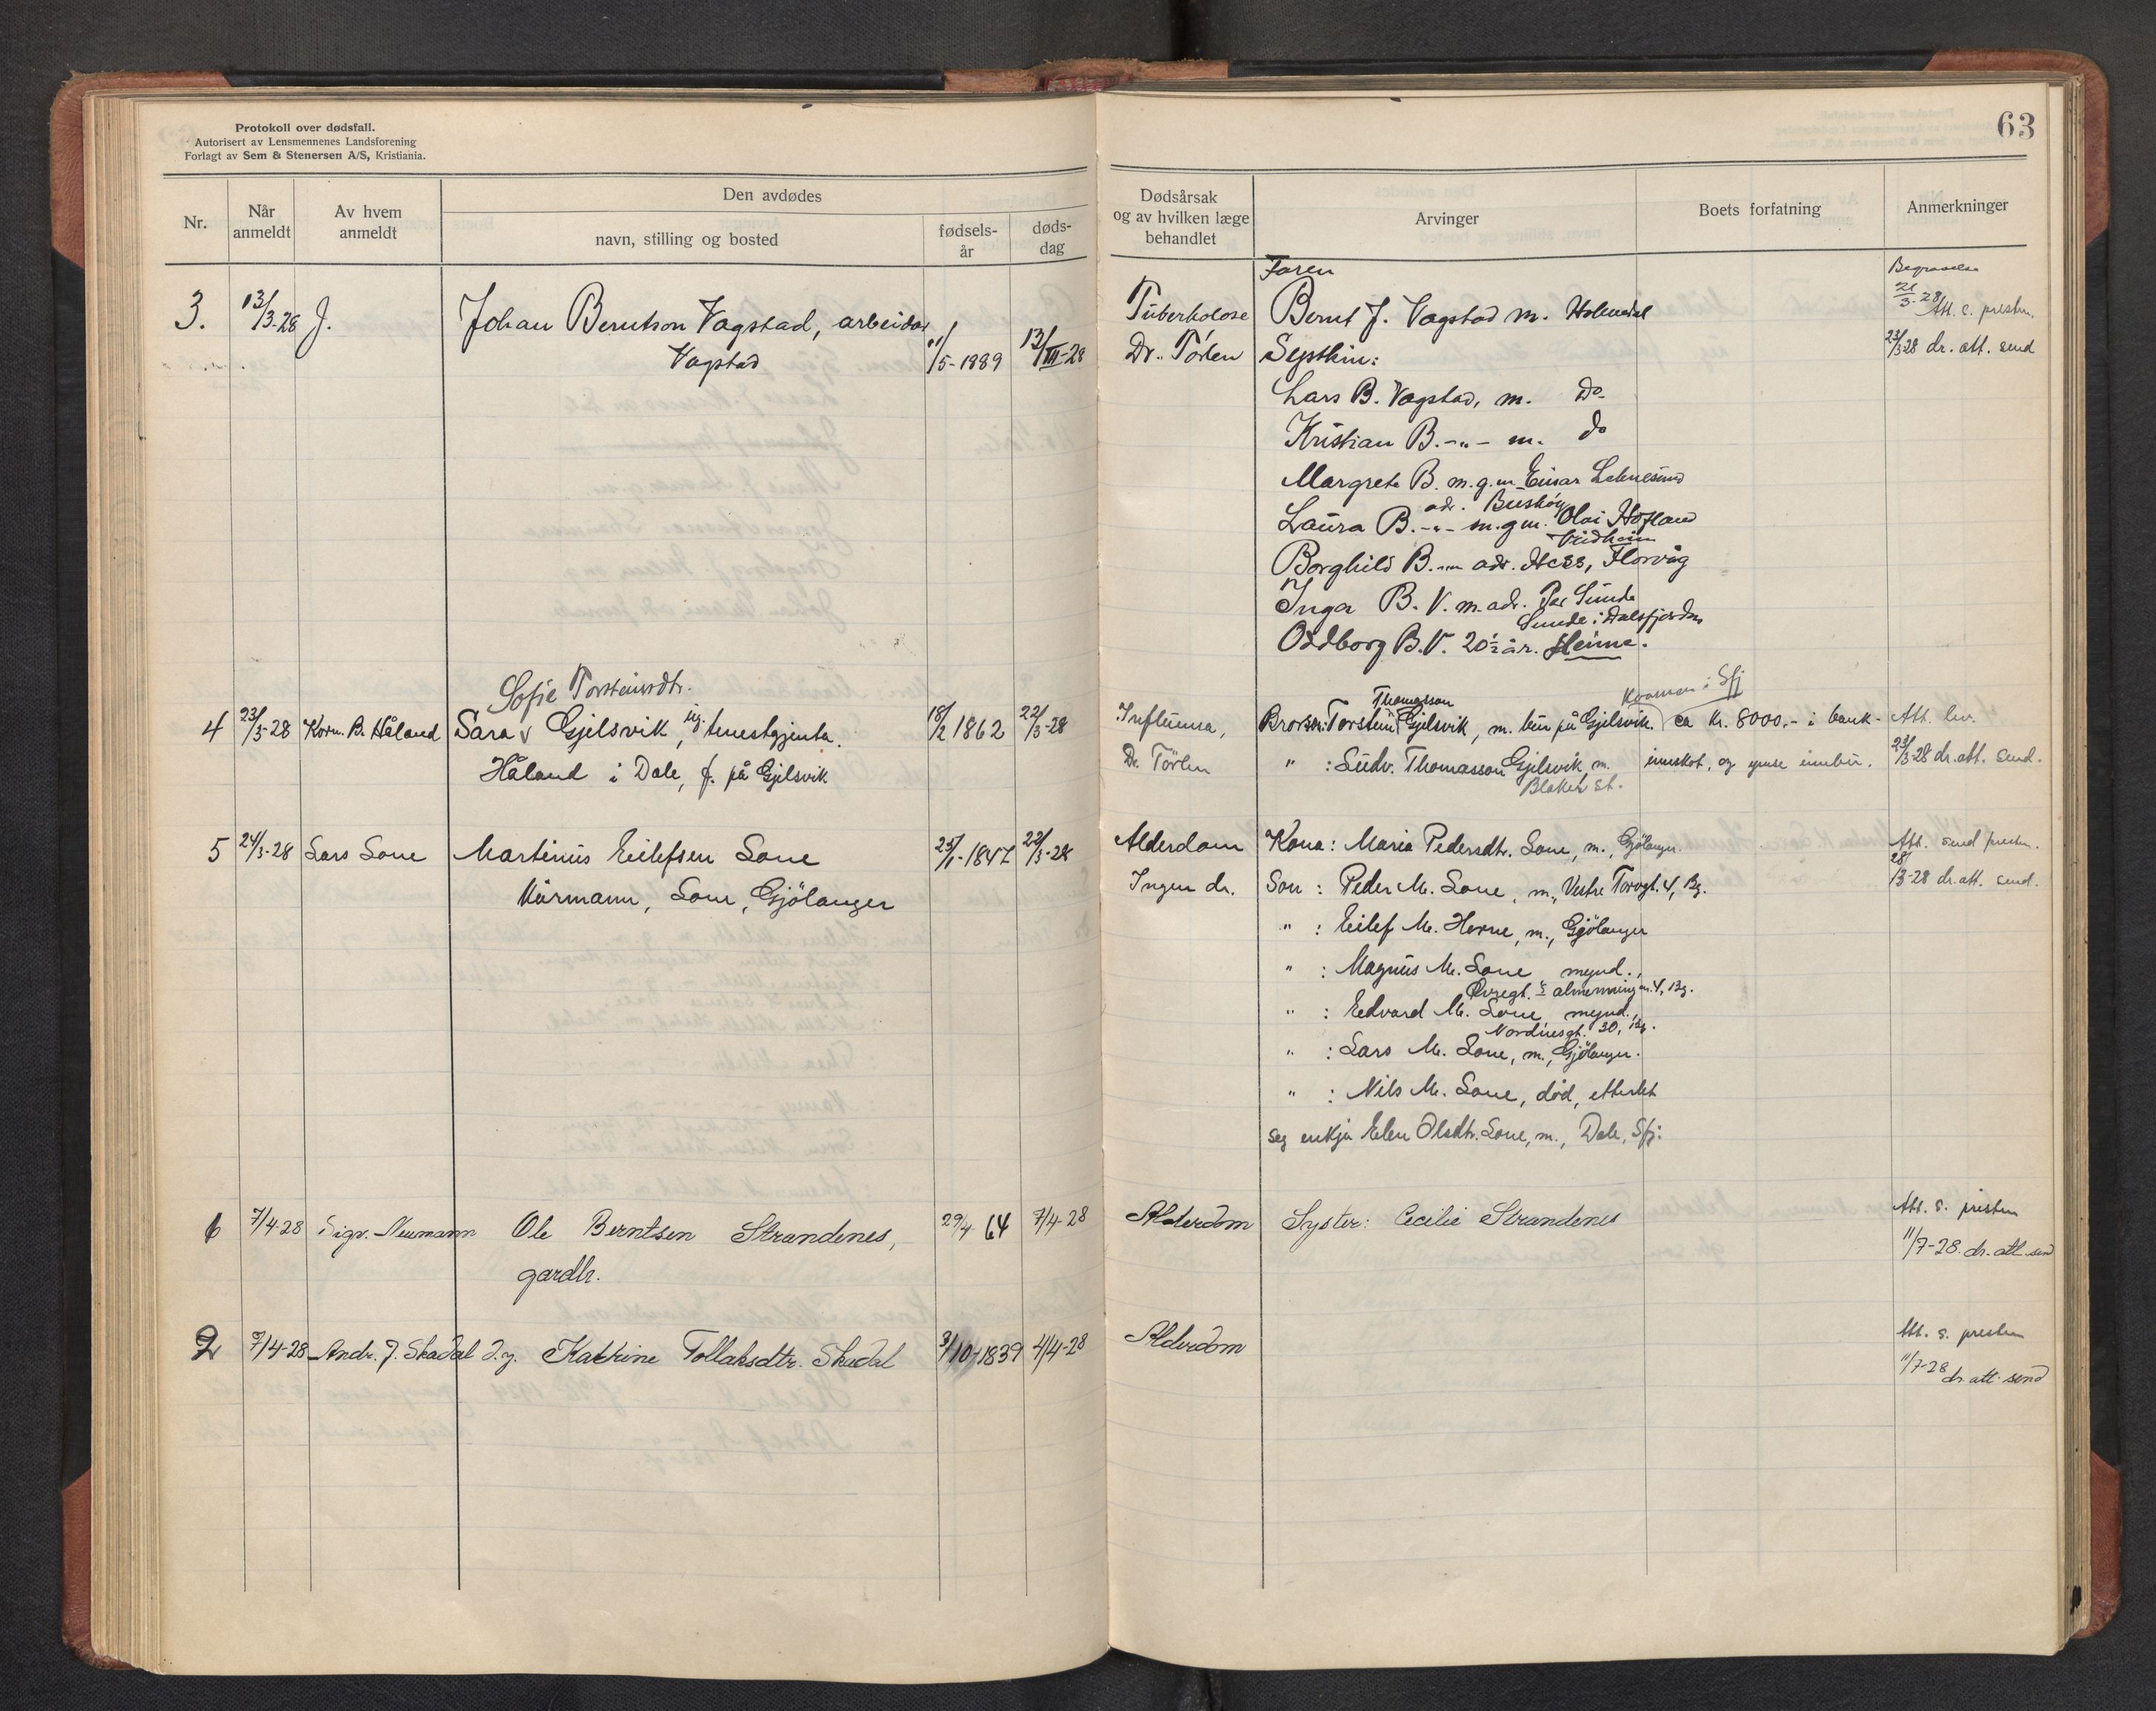 Protokoll over dødsfall.
Autorisert av Lensmennenes Landsforening
Forlagt av Sem & Stenersen A/S, Kristiania.
63
Nr.
Når anmeldt
Av hvem anmeldt
Den avdødes
navn, stilling og bosted
fødsels-år
døds-dag
Dødsårsak og av hvilken læge behandlet
Arvinger
Boets forfatning
Anmerkninger
3. 13/3-28 J. Johan Berntson Vagstad, arbeidar 11/5-1889 13/III-28
Vagstad
Tuberkolose
Dr. Törlen
Faren
Bernt J. Vagstad m. Holmedal
Systkin:
Lars B. Vagstad, m. Do
Kristian B. -"- m. do
Margrete B. m.g.m. Einar
adr.
Laura B. -"- m.g.m. Olai Hofland
Borghild B. -"- adr. Hess, Florvåg
Inga B. V. m. adr. Per Sunde
Sunde i Dalsfjorden
Oddborg B. V. 20½ år. Heime.
Begravelse
21/3-28 Att. s. presten.
23/3-28 dr. att. send
Sofie Torsteinsdtr.
4 23/3-28 Korn. B. Håland Sara v Gjelsvik, ug. tenestgjenta. 18/2 1862 22/3-28
Håland i Dale, f. på Gjelsvik
Influensa,
Dr. Törlen
Thomasson
Bror: Torstein Gjelsvik, m. bur på Gjelsvik.
" : Ludv. Thomasson Gjelsvik, m.
Blaker st.
ca kr. 8000.- i bank-
innskot, og ymse innbu.
Att. lev.
23/3-28 dr. att. send.
5 24/3-28 Lars Lone Martinus Eilefsen Lone 25/1-1847 22/3-28
Kårmann, Lone, Gjölanger
Alderdom
Ingen dr.
Kona: Maria Pedersdtr. Lone, m., Gjölanger.
Son : Peder M. Lone, m., Vestre Torvgt. 4, Bg.
" : Eilef M. Herne, m., Gjölanger
" : Magnus M. Lone, mynd.,
Øvregt. almenningen 4, Bg.
" : Edvard M. Lone, mynd.,
Nordnesgt. 30, Bg.
" : Lars M. Lone, m., Gjölanger.
" : Nils M. Lone, död, etterlet
seg enkja Elen Olsdtr. Lone, m., Dale, Sfj.
Att. send presten.
28/3-28 dr. att. send.
6 7/4-28 Sigv. Neumann Ole Berntsen Strandenes, 29/4 64 7/4-28
gardbr.
Alderdom
Syster: Cecilie Strandenes
Att. s. presten
11/7-28. dr. att. send
7 7/4-28 Andr. J. Skadal d.y. Katrine Tollaksdtr. Skadal 3/10-1839 4/4-28
Alderdom
Att. s. presten
11/7-28
dr. att. send